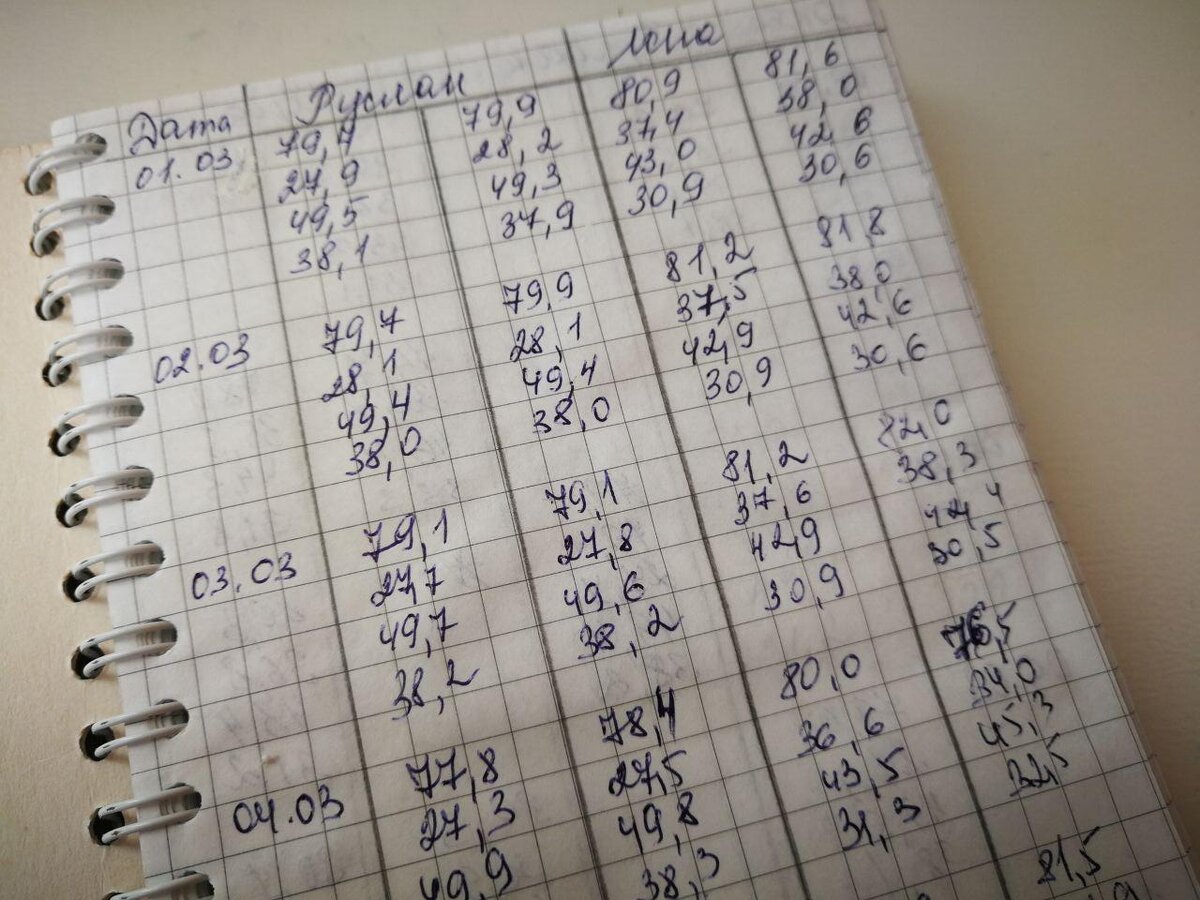 Дата Руслан
01.03 79,7 79,9 80,9 81,6
27,9 28,2 37,4 38,0
49,5 49,3 43,0 42,6
38,1 37,9 30,9 30,6
02.03 79,7 79,9 81,2 81,8
28,1 28,1 37,5 38,0
49,4 49,4 42,9 42,6
38,0 38,0 30,9 30,6
03.03 79,1 79,1 81,2 82,0
27,7 27,8 37,6 38,3
49,7 49,6 42,9 42,4
38,2 38,2 30,9 30,5
04.03 77,8 78,4 80,0 76,5
27,3 27,5 36,6 34,0
49,9 49,8 43,5 45,3
38,3 31,3 32,5
81,5